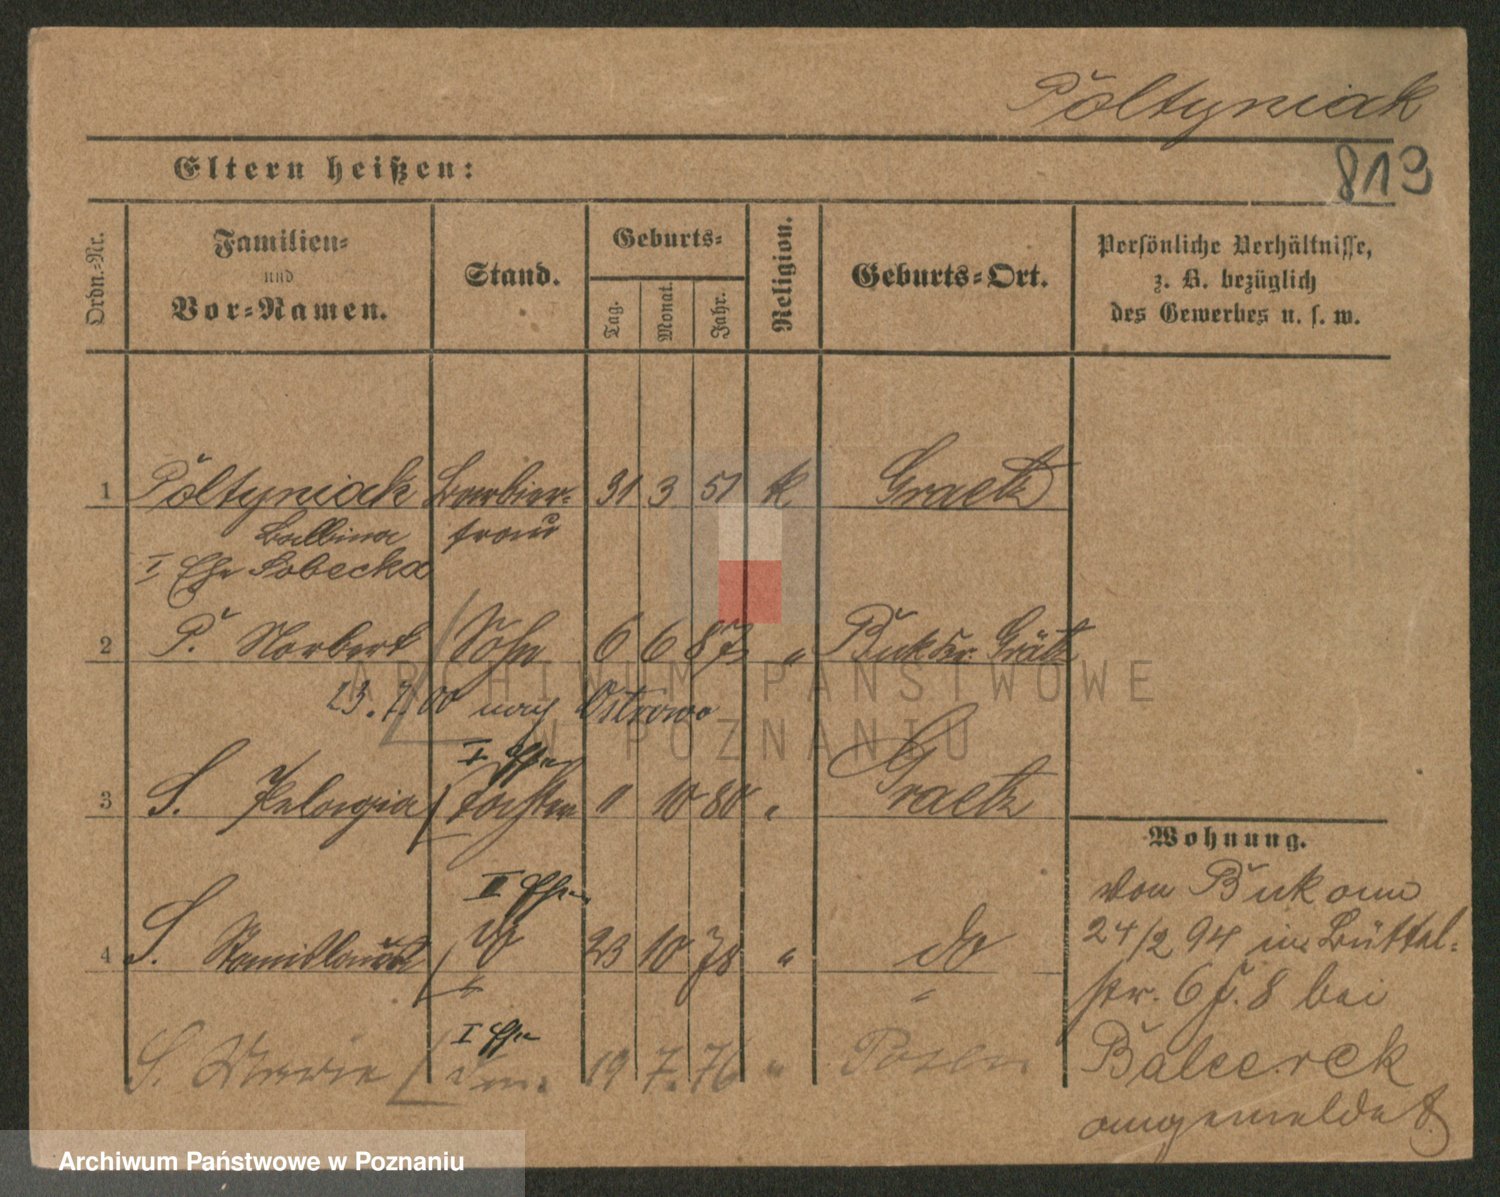 Poltyniak
813
Eltern heißen:
Ordn.-Nr.
Familien-
und
Vor-Namen.
Stand.
Geburts-
Tag.
Monat.
Jahr.
Religion.
Geburts-Ort.
Persönliche Verhältnisse,
z. B. bezüglich
des Gewerbes u. s. w.
1 Poltyniak Barbier- 31 3 51 k Graetz
Balbina frau
I Ehe Sobecka
2 P. Norbert Sohn 6 6 87 " Buk Kr. Grätz
23.7.00 nach Ostrowo
I Ehe
3 S. Pelagia Tochter 11 10 80 " Graetz
Wohnung.
II Ehe
4 S. Stanislaus do 23 10 78 " do
I Ehe
S. Marie 19 7. 76 " Posen
von Buk am
24/2 94 in Büttel-
str. 6 f. 8 bei
Balcerek
angemeldet.
ARCHIWUM PAŃSTWOWE
W POZNANIU
Archiwum Państwowe w Poznaniu